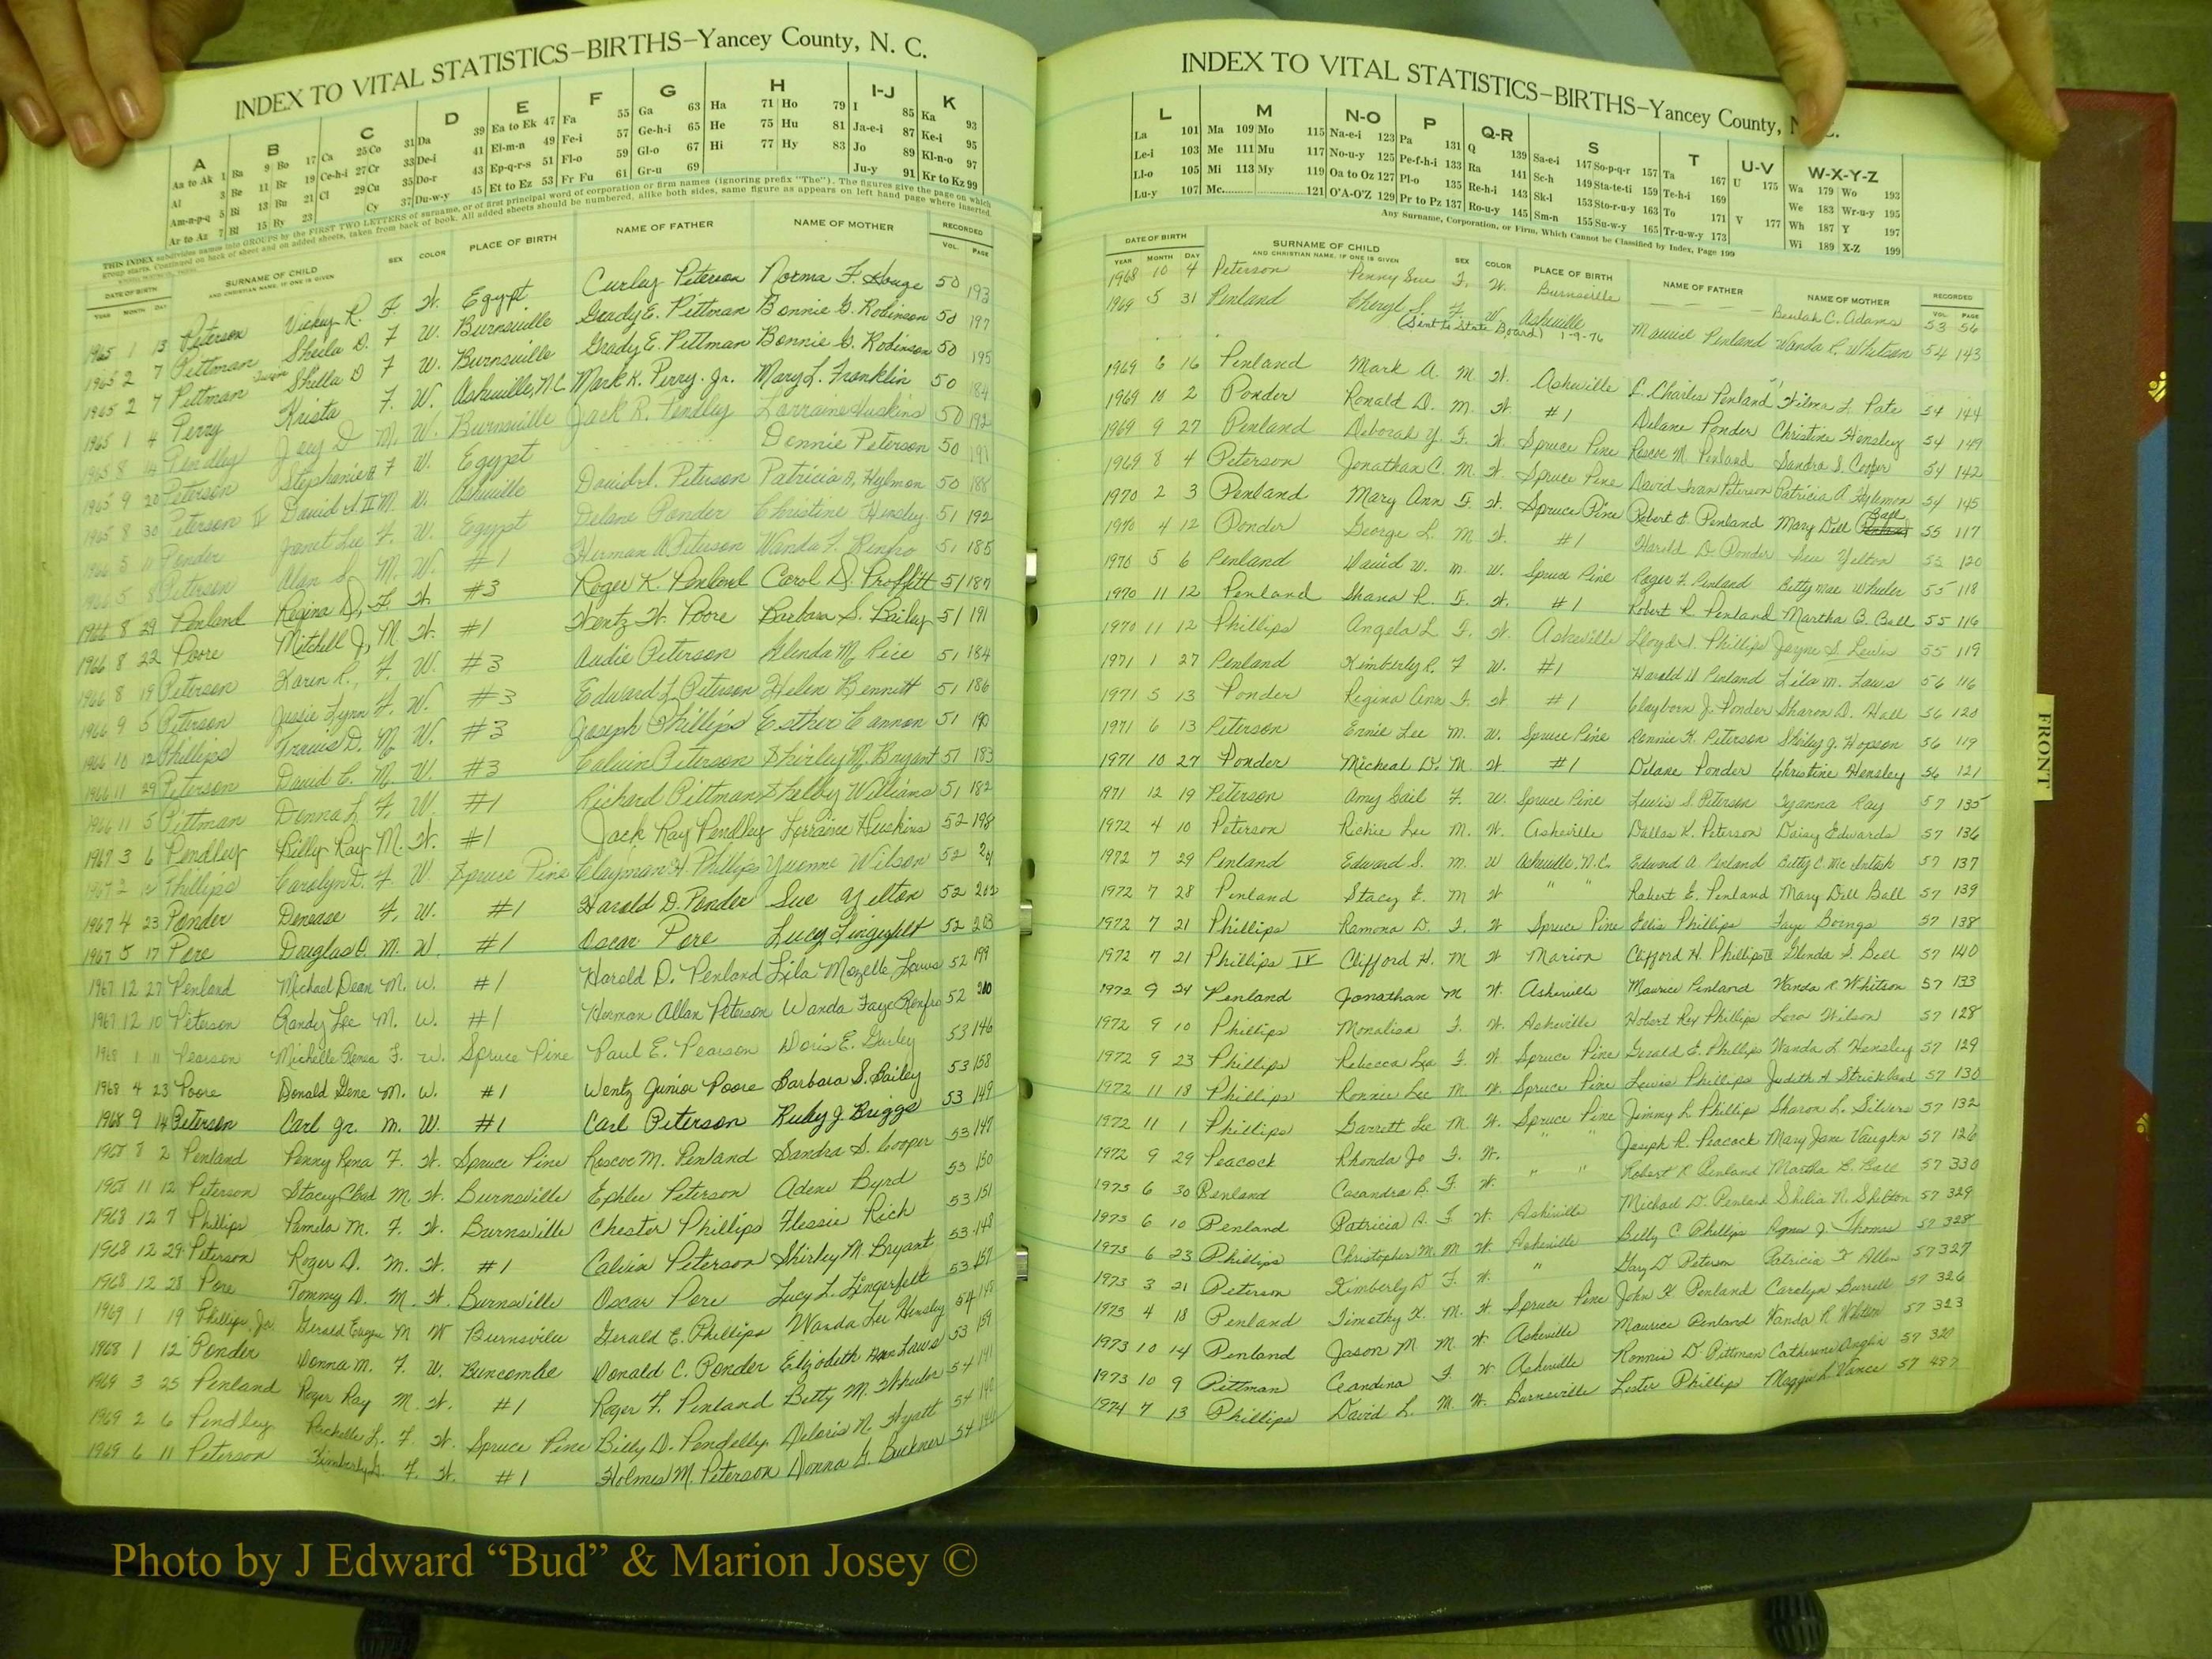 INDEX TO VITAL STATISTICS–BIRTHS–Yancey County, N. C.
A B C D E F G H I-J K
Aa to Ak 1 Ba 9 Bo 17 Ca 25 Co 31 Da 39 Ea to Ek 47 Fa 55 Ga 63 Ha 71 Ho 79 I 85 Ka 93
Al 3 Be 11 Br 19 Ce-h-i 27 Cr 33 De-i 41 El-m-n 49 Fe-i 57 Ge-h-i 65 He 75 Hu 81 Ja-e-i 87 Ke-i 95
Am-n-p-q 5 Bi 13 Bu 21 Cl 29 Cu 35 Do-r 43 Ep-q-r-s 51 Fl-o 59 Gl-o 67 Hi 77 Hy 83 Jo 89 Kl-n-o 97
Ar to Az 7 Bl 15 By 23 Cy 37 Du-w-y 45 Et to Ez 53 Fr Fu 61 Gr-u 69 Ju-y 91 Kr to Kz 99
THIS INDEX subdivides names into GROUPS by the FIRST TWO LETTERS of surname, or of first principal word of corporation or firm names (ignoring prefix "The"). The figures give the page on which
group starts. Continued on back of sheet and on added sheets, taken from back of book. All added sheets should be numbered, alike both sides, same figure as appears on left hand page where inserted.
DATE OF BIRTH SURNAME OF CHILD SEX COLOR PLACE OF BIRTH NAME OF FATHER NAME OF MOTHER RECORDED
YEAR MONTH DAY AND CHRISTIAN NAME, IF ONE IS GIVEN VOL. PAGE
1965 1 13 Peterson Vickey R. F. W. Egypt Curley Peterson Norma F. Houge 50 193
1965 2 7 Pittman Sheila D. F W. Burnsville Grady E. Pittman Bonnie G. Robinson 50 197
1965 2 7 Pittman Shella D F W. Burnsville Grady E. Pittman Bonnie G. Robinson 50 195
1965 1 4 Perry Krista F. W. Asheville, N.C. Mark K. Perry, Jr. Mary L. Franklin 50 184
1965 8 14 Pendley Joey D M. W. Burnsville Jack R. Pendley Lorraine Huskins 50 192
1965 9 20 Peterson Stephanie F W. Egypt Dennie Peterson 50 191
1965 8 30 Peterson II David I. II M. W. Asheville David I. Peterson Patricia A. Hylmon 50 188
1966 5 11 Ponder Janet Lee F. W. Egypt Delane Ponder Christine Hensley 51 192
1966 5 8 Peterson Alan S. M. W. #1 Herman A Peterson Wanda F. Renfro 51 185
1966 8 29 Penland Regina D. F. W. #3 Roger K. Penland Carol D. Proffitt 51 187
1966 8 22 Poore Mitchell J. M W. #1 Wentz W. Poore Barbara S. Bailey 51 191
1966 8 19 Peterson Karen R. F. W. #3 Audie Peterson Glenda M. Rice 51 184
1966 9 5 Peterson Jessie Lynn F. W. #3 Edward L. Peterson Helen Bennett 51 186
1966 10 12 Phillips Travis D. M. W. #3 Joseph Phillips Esther Cannon 51 190
1966 11 29 Peterson David C. M. W. #3 Calvin Peterson Shirley M. Bryant 51 183
1966 11 5 Pittman Donna L F. W. #1 Richard Pittman Shelby Williams 51 182
1967 3 6 Pendley Billy Ray M. W. #1 Jack Ray Pendley Lorraine Huskins 52 198
1967 2 Phillips Carolyn D. F. W. Spruce Pine Clayman H. Phillips Yvonne Wilson 52 201
1967 4 23 Ponder Denease F. W. #1 Harold D. Ponder Sue Yelton 52 202
1967 5 17 Pore Douglas O. M. W. #1 Oscar Pore Lucy Lingerfelt 52 203
1967 12 27 Penland Michael Dean M. W. #1 Harold D. Penland Lila Mozelle Laws 52 199
1967 12 10 Peterson Randy Lee M. W. #1 Herman Allan Peterson Wanda Faye Renfro 52 200
1968 1 11 Pearson Michelle Renea F. W. Spruce Pine Paul E. Pearson Doris E. Gurley 53 146
1968 4 23 Poore Donald Gene M. W. #1 Wentz Junior Poore Barbara S. Bailey 53 158
1968 9 14 Peterson Carl Jr. M. W. #1 Carl Peterson Ruby J. Briggs 53 149
1968 8 2 Penland Penny Rena F. W. Spruce Pine Roscoe M. Penland Sandra S. Cooper 53 147
1968 11 12 Peterson Stacey Chad M. W. Burnsville Ephlee Peterson Adene Byrd 53 150
1968 12 7 Phillips Pamela M. F. W. Burnsville Chester Phillips Flossie Rich 53 151
1968 12 29 Peterson Roger D. M. W. #1 Calvin Peterson Shirley M. Bryant 53 148
1968 12 28 Pore Tommy D. M. W. Burnsville Oscar Pore Lucy L. Lingerfelt 53 157
1969 1 19 Phillips, Jr. Gerald Eugene M W Burnsville Gerald E. Phillips Wanda Lee Hensley 54
1968 1 12 Ponder Donna M. F. W. Buncombe Donald C. Ponder Elizabeth Ann Laws 53 159
1969 3 25 Penland Roger Ray M. W. #1 Roger F. Penland Betty M. Wheeler 54 141
1969 2 6 Pendley Rachelle L. F. W. Spruce Pine Billy D. Pendelly Deloris N. Hyatt 54 140
1969 6 11 Peterson Kimberly F. W. #1 Holmes M. Peterson Donna G. Buckner 54
INDEX TO VITAL STATISTICS–BIRTHS–Yancey County, N. C.
L M N-O P Q-R S T U-V W-X-Y-Z
La 101 Ma 109 Mo 115 Na-e-i 123 Pa 131 Q 139 Sa-e-i 147 So-p-q-r 157 Ta 167 U 175 Wa 179 Wo 193
Le-i 103 Me 111 Mu 117 No-u-y 125 Pe-f-h-i 133 Ra 141 Sc-h 149 Sta-te-ti 159 Te-h-i 169 We 183 Wr-u-y 195
Ll-o 105 Mi 113 My 119 Oa to Oz 127 Pl-o 135 Re-h-i 143 Sk-l 153 Sto-r-u-y 163 To 171 V 177 Wh 187 Y 197
Lu-y 107 Mc 121 O'A-O'Z 129 Pr to Pz 137 Ro-u-y 145 Sm-n 155 Su-w-y 165 Tr-u-w-y 173 Wi 189 X-Z 199
Any Surname, Corporation, or Firm, Which Cannot be Classified by Index, Page 199
DATE OF BIRTH SURNAME OF CHILD SEX COLOR PLACE OF BIRTH NAME OF FATHER NAME OF MOTHER RECORDED
YEAR MONTH DAY AND CHRISTIAN NAME, IF ONE IS GIVEN VOL. PAGE
1968 10 4 Peterson Penny Sue F. W. Burnsville — — — Beulah C. Adams 53 56
1969 5 31 Penland Cheryl S. F W Asheville Maurice Penland Wanda R. Whitson 54 143
(Sent to State Board) 1-9-76
1969 6 16 Penland Mark A. M. W. Asheville C. Charles Penland Wilma L. Pate 54 144
1969 10 2 Ponder Ronald D. M. W. #1 Delane Ponder Christine Hensley 54 149
1969 9 27 Penland Deborah Y. F. W. Spruce Pine Roscoe M. Penland Sandra S. Cooper 54 142
1969 8 4 Peterson Jonathan C. M. W. Spruce Pine David Ivan Peterson Patricia A. Hylemon 54 145
1970 2 3 Penland Mary Ann F. W. Spruce Pine Robert E. Penland Mary Dell Ball 55 117
1970 4 12 Ponder George L. M W. #1 Harold D. Ponder Sue Yelton 55 120
1970 5 6 Penland David W. M. W. Spruce Pine Roger F. Penland Betty Mae Wheeler 55 118
1970 11 12 Penland Shana R. F. W. #1 Robert R. Penland Martha B. Ball 55 116
1970 11 12 Phillips Angela L F. W. Asheville Lloyd I. Phillips Jayne S. Lewis 55 119
1971 1 27 Penland Kimberly R. F W. #1 Harold D Penland Lila M. Laws 56 116
1971 5 13 Ponder Regina Ann F. W #1 Clayborn J. Ponder Sharon D. Hall 56 120
1971 6 13 Peterson Ernie Lee M. W. Spruce Pine Ronnie K. Peterson Shirley J. Hopson 56 119
1971 10 27 Ponder Micheal D. M. W. #1 Delane Ponder Christine Hensley 56 121
1971 12 19 Peterson Amy Gail F. W. Spruce Pine Lewis S. Peterson Iyanna Ray 57 135
1972 4 10 Peterson Richie Lee M. W. Asheville Dallas K. Peterson Daisy Edwards 57 136
1972 7 29 Penland Edward S. M. W Asheville, N.C. Edward A. Penland Betty C. McIntosh 57 137
1972 7 28 Penland Stacy E. M W " " Robert E. Penland Mary Dell Ball 57 139
1972 7 21 Phillips Ramona D. F. W Spruce Pine Ellis Phillips Faye Boings 57 138
1972 7 21 Phillips IV Clifford H. M W Marion Clifford H. Phillips III Glenda S. Bell 57 140
1972 9 24 Penland Jonathan M W. Asheville Maurice Penland Wanda R. Whitson 57 133
1972 9 10 Phillips Monalisa F. W. Asheville Hobert Rex Phillips Lera Wilson 57 128
1972 9 23 Phillips Rebecca Lea F. W. Spruce Pine Gerald E. Phillips Wanda L. Hensley 57 129
1972 11 18 Phillips Ronnie Lee M W. Spruce Pine Lewis Phillips Judith A Strickland 57 130
1972 11 1 Phillips Garrett Lee M W. Spruce Pine Jimmy L. Phillips Sharon L. Silvers 57 132
1972 9 29 Peacock Rhonda Jo F. W. " " Joseph R. Peacock Mary Jane Vaughn 57 126
1973 6 30 Penland Casandra B. F W. " " Robert R. Penland Martha B. Ball 57 330
1973 6 10 Penland Patricia A. F W. Asheville Michael D. Penland Shelia N. Shelton 57 329
1973 6 23 Phillips Christopher M. M W. Asheville Billy C. Phillips Agnes J. Thomas 57 328
1973 3 21 Peterson Kimberly D F. W. " Gary D. Peterson Patricia F Allen 57 327
1973 4 18 Penland Timothy K. M. W. Spruce Pine John K Penland Carolyn Burrell 57 326
1973 10 14 Penland Jason M M W. Asheville Maurice Penland Wanda R Whitson 57 323
1973 10 9 Pittman Ceandina F. W Asheville Ronnie D. Pittman Catherine Anglin 57 320
1974 7 13 Phillips David L. M. W. Burnsville Lester Phillips Maggie L Vance 57 487
FRONT
Photo by J Edward “Bud” & Marion Josey ©